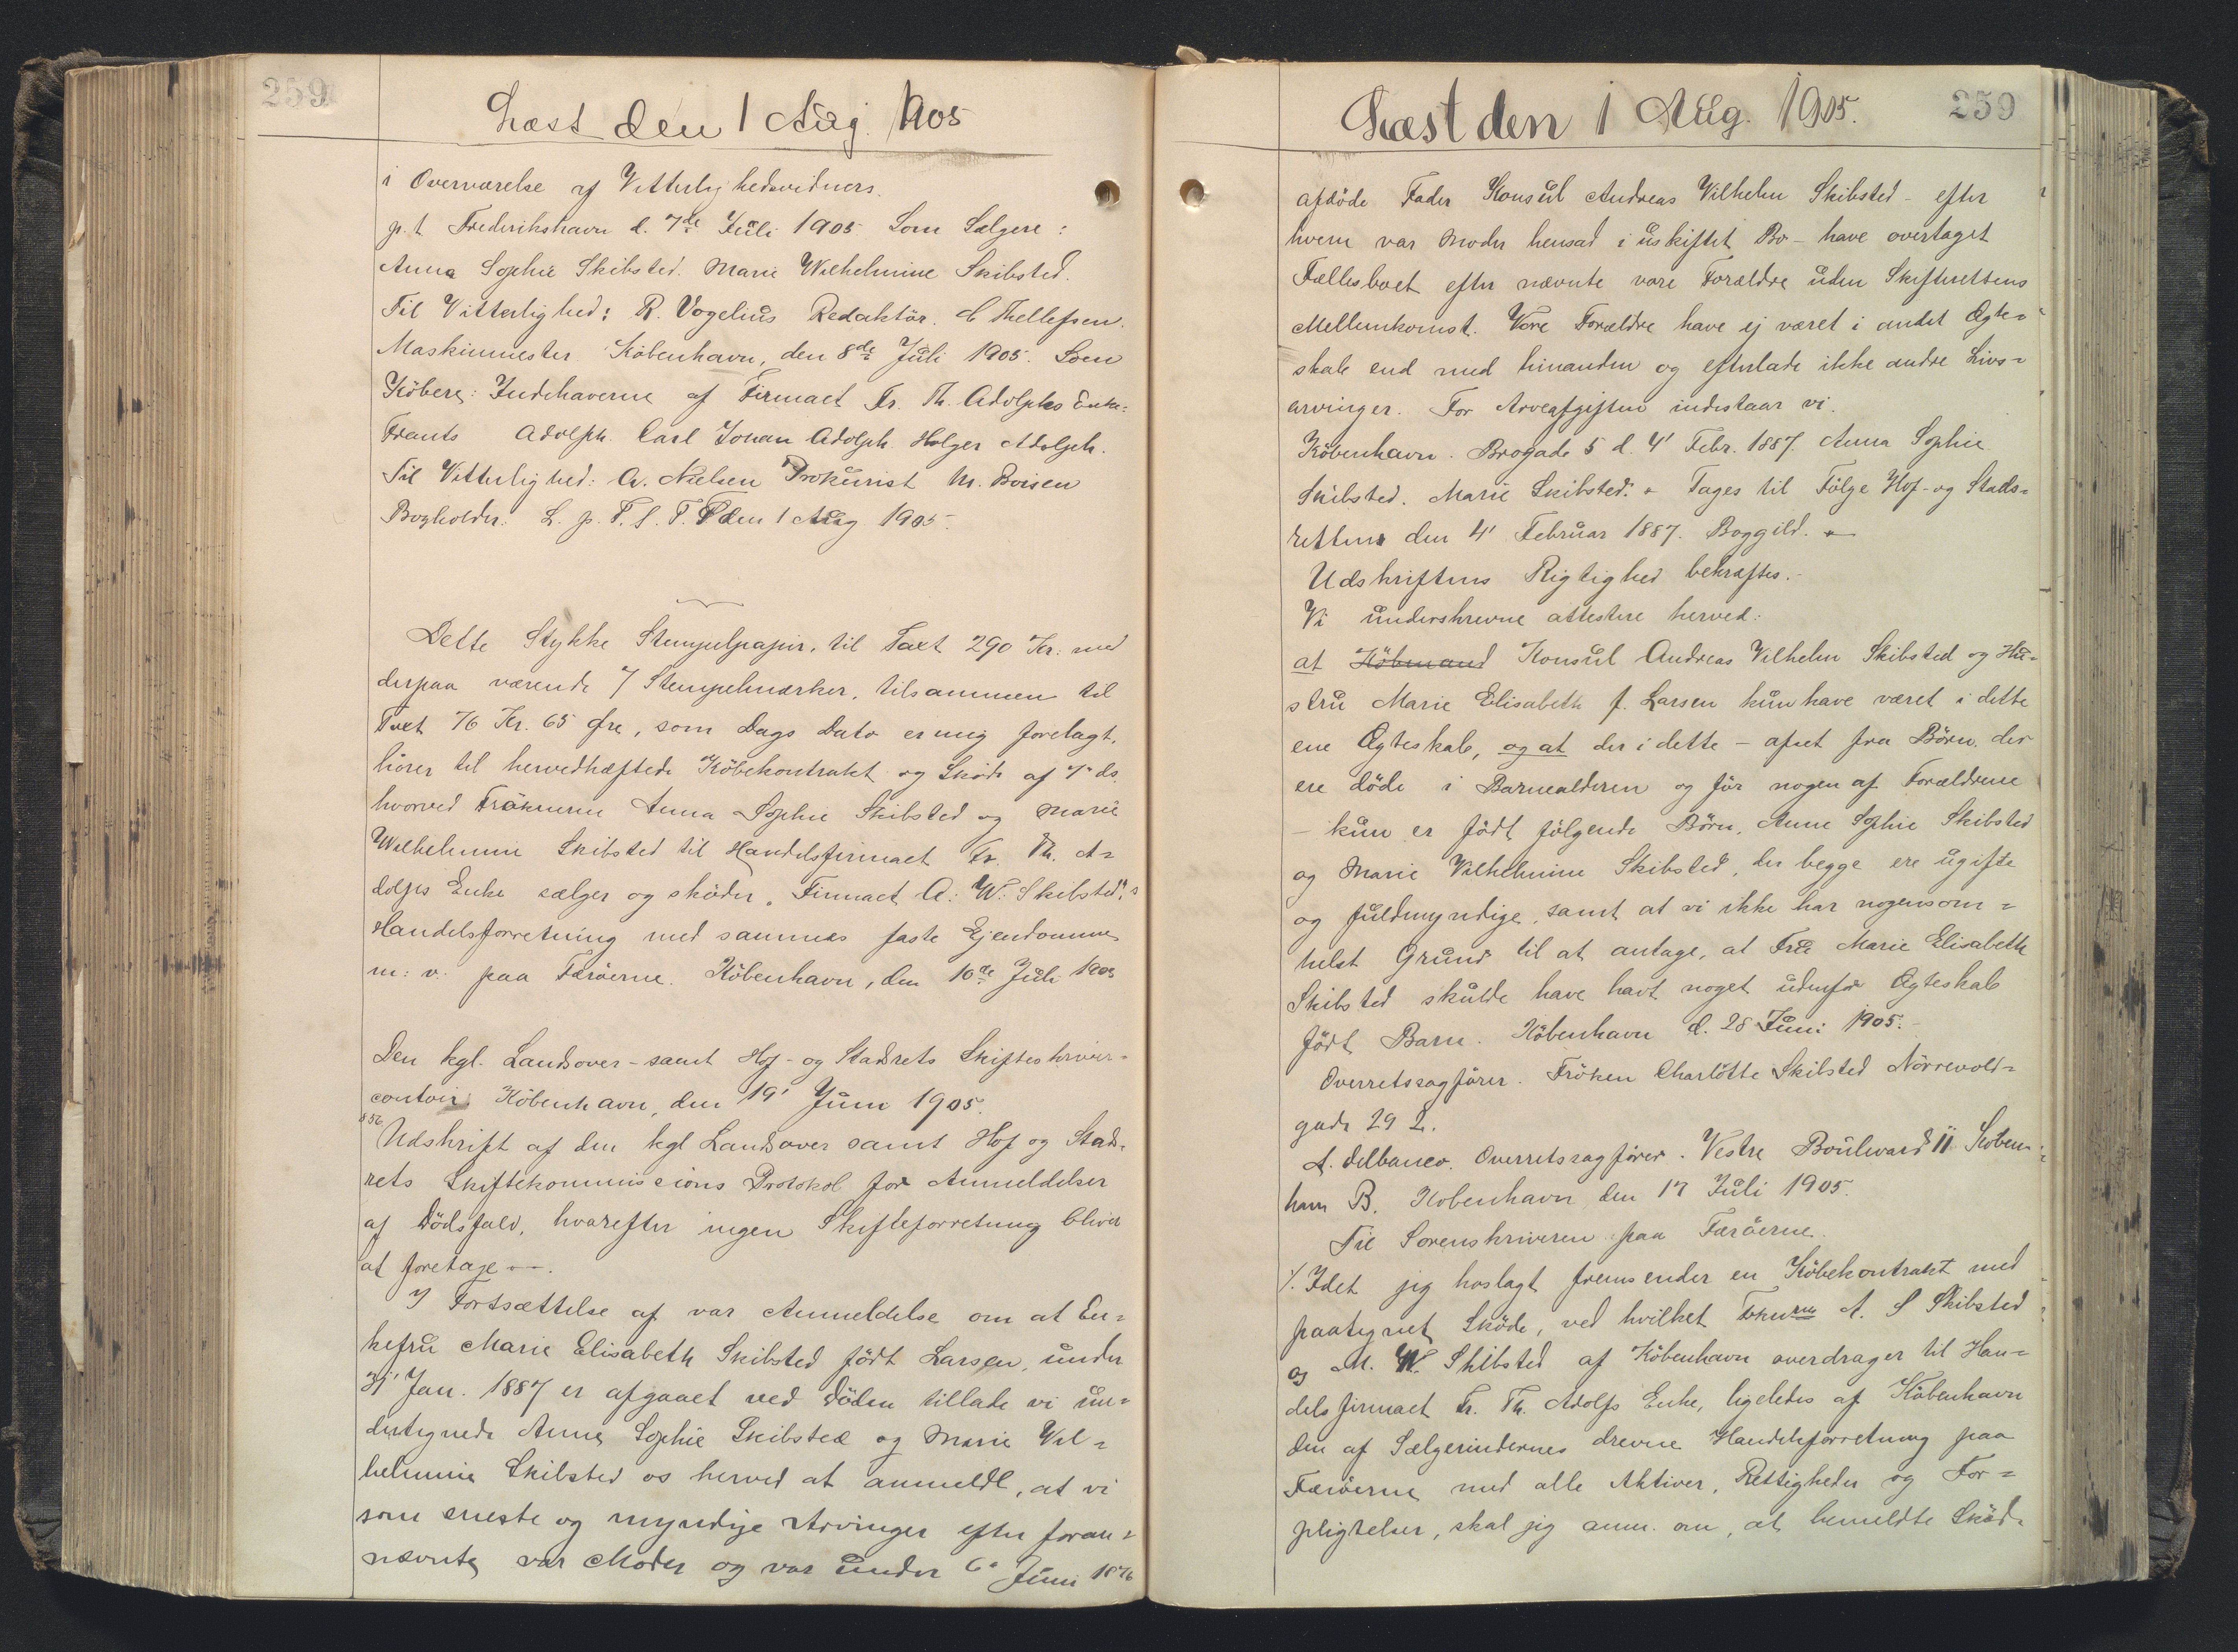 259
Læst den 1 Aug. 1905
i Overværelse af Vitterlighedsvidners.
p. t. Frederikshavn d. 7de Juli 1905. Som Sælgere:
Anna Sophie Skibsted. Marie Wilhelmine Skibsted.
Til Vitterlighed: R. Vogelius Redaktör. C Thellefsen.
Maskinmester. Köbenhavn, den 8de Juli 1905. Som
Köbere: Indehaverne af Firmaet Fr. Th. Adolphs Enke.
Frants Adolph. Carl Johan Adolph. Holger Adolph.
Til Vitterlighed: A. Nielsen Prokurist M. Boisen
Bogholder. L. p. F. S. T. P den 1 Aug 1905.
Dette Stykke Stempelpapir, til Taxt 290 Kr. med
derpaa værende 7 Stempelmærker, tilsammen til
Taxt 76 Kr. 65 Øre, som Dags Dato er mig forelagt,
hörer til hervedhæftede Köbekontrakt og Sköde af 7' ds.
hvorved Frökenerne Anna Sophie Skibsted og Marie
Wilhelmine Skibsted til Handelsfirmaet Fr. Th. A=
dolfs Enke sælger og sköder „Firmaet A. W. Skibsted"s
Handelsforretning med sammes faste Ejendomme
m: v. paa Færöerne. Köbenhavn, den 10de Juli 1905
Den kgl. Landsover- samt Hof- og Stadsrets Skifteskriver=
contoir Köbenhavn, den 19' Juni 1905.
856 Udskrift af den kgl Landsover samt Hof og Stads=
rets Skiftekommissions Protokol for Anmeldelser
af Dödsfald, hvorefter ingen Skifteforretning bliver
at foretage —.
I Fortsættelse af vor Anmeldelse om at En=
kefru Marie Elisabeth Skibsted födt Larsen, under
31' Jan. 1887 er afgaaet ved Döden tillade vi un=
dertegnede Anna Sophie Skibsted og Marie Wil=
helmine Skibsted os herved at anmelde, at vi
som eneste og myndige Arvinger efter foran=
nævnte vor Moder og vor under 6' Juni 1876
Læst den 1 Aug. 1905. 259
afdöde Fader Konsul Andreas Vilhelm Skibsted - efter
hvem vor Moder hensad i uskiftet Bo - have overtaget
Fællesboet efter nævnte vore Forældre uden Skifterettens
Mellemkomst. Vore Forældre have ej været i andet Ægte=
skab end med hinanden og efterlade ikke andre Livs=
arvinger. For Arveafgiften indestaar vi.
Köbenhavn. Brogade 5 d. 4' Febr. 1887. Anna Sophie
Skibsted. Marie Skibsted. - Tages til Fölge Hof- og Stads=
rettens den 4' Februar 1887. Boggild. -
Udskriftens Rigtighed bekræftes.-
Vi underskrevne attestere herved:
at Köbmand Konsul Andreas Vilhelm Skibsted og Hu=
stru Marie Elisabeth f. Larsen kun have været i dette
ene Ægteskab, og at der i dette - afset fra Börn, der
ere döde i Barnealderen og för nogen af Forældrene
- kun er födt fölgende Börn, Anne Sophie Skibsted
og Marie Vilhelmine Skibsted, der begge ere ugifte
og fuldmyndige, samt at vi ikke har nogensom=
helst Grund til at antage, at Fru Marie Elisabeth
Skibsted skulde have havt noget udenfor Ægteskab
födt Barn. Köbenhavn d. 28 Juni 1905.-
Overretssagförer. Fröken Charlotte Skibsted Nörrevold=
gade 29 2.
A. Delbanco. Overretssagförer. Vestre Boulevard 11. Köben=
havn B. Köbenhavn, den 17 Juli 1905.
Til Sorenskriveren paa Færöerne.
%. Idet jeg hoslagt fremsender en Köbekontrakt med
paategnet Sköde, ved hvilket A. S Skibsted
og M. W. Skibsted af Köbenhavn overdrager til Han=
delsfirmaet Fr. Th. Adolfs Enke, ligeledes af Köbenhavn
den af Sælgerindernes drevne Handelsforretning paa
Færöerne med alle Aktiver, Rettigheder og For=
pligtelser, skal jeg anm. om, at bemeldte Sköde